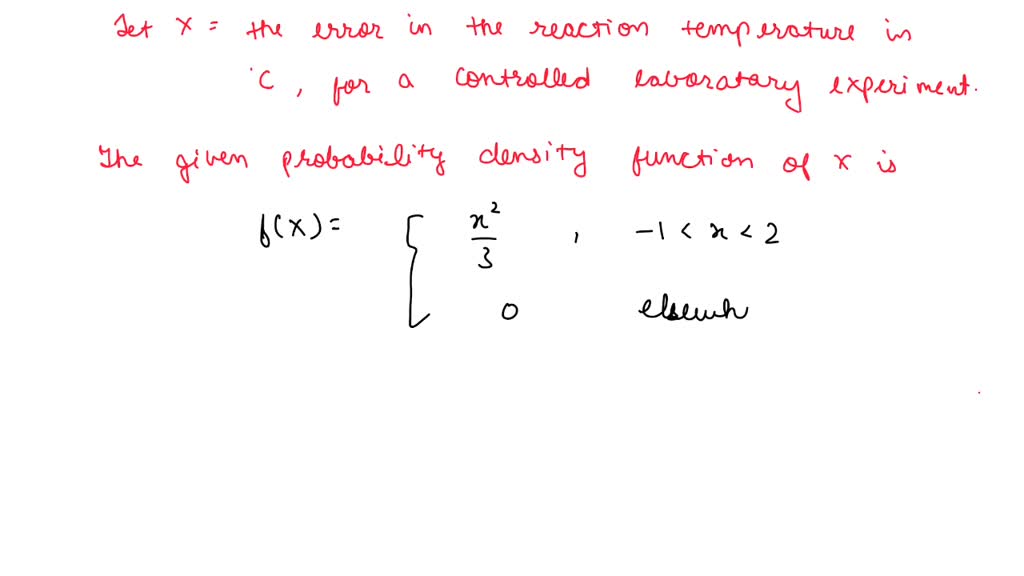 Let X = the error in the reaction temperature in
°C, for a controlled laboratary experiment.
The given probability density function of x is
f(x) = { x²/3 , -1 < x < 2
0 elsewh